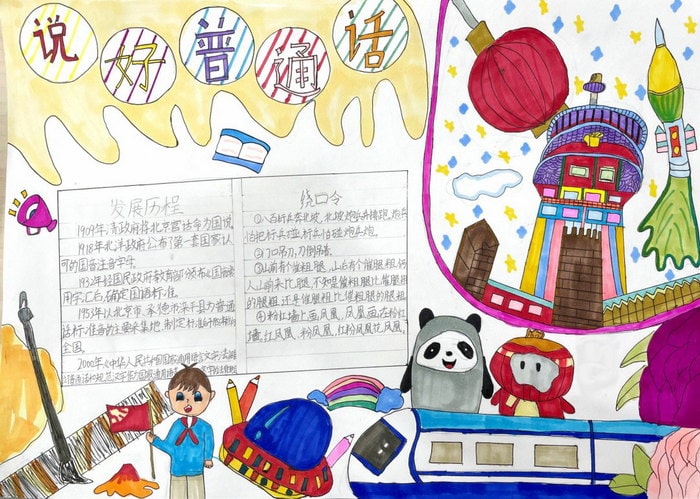 说好普通话
发展历程
1909年，清政府将北京官话命为国语
1918年北洋政府公布了第一套国家认
可的国音注音字母
1932年经国民政府教育部颁布《国音常
用字汇》后，确定国语标准。
1953年以北京市、承德市滦平县为普通
话标准音的主要采集地，制定标准后推向
全国。
2000年《中华人民共和国国家通用语言文字法》
绕口令
①八百标兵奔北坡，北坡炮兵并排跑，炮兵
怕把标兵碰，标兵怕碰炮兵炮。
②门口吊刀，刀倒吊着。
③山前有个崔粗腿，山后有个崔腿粗，俩
人山前来比腿，不知是崔粗腿比崔腿粗
的腿粗，还是崔腿粗比崔粗腿的腿粗
④粉红墙上画凤凰，凤凰画在粉红
墙，红凤凰、粉凤凰，红粉凤凰花凤凰。